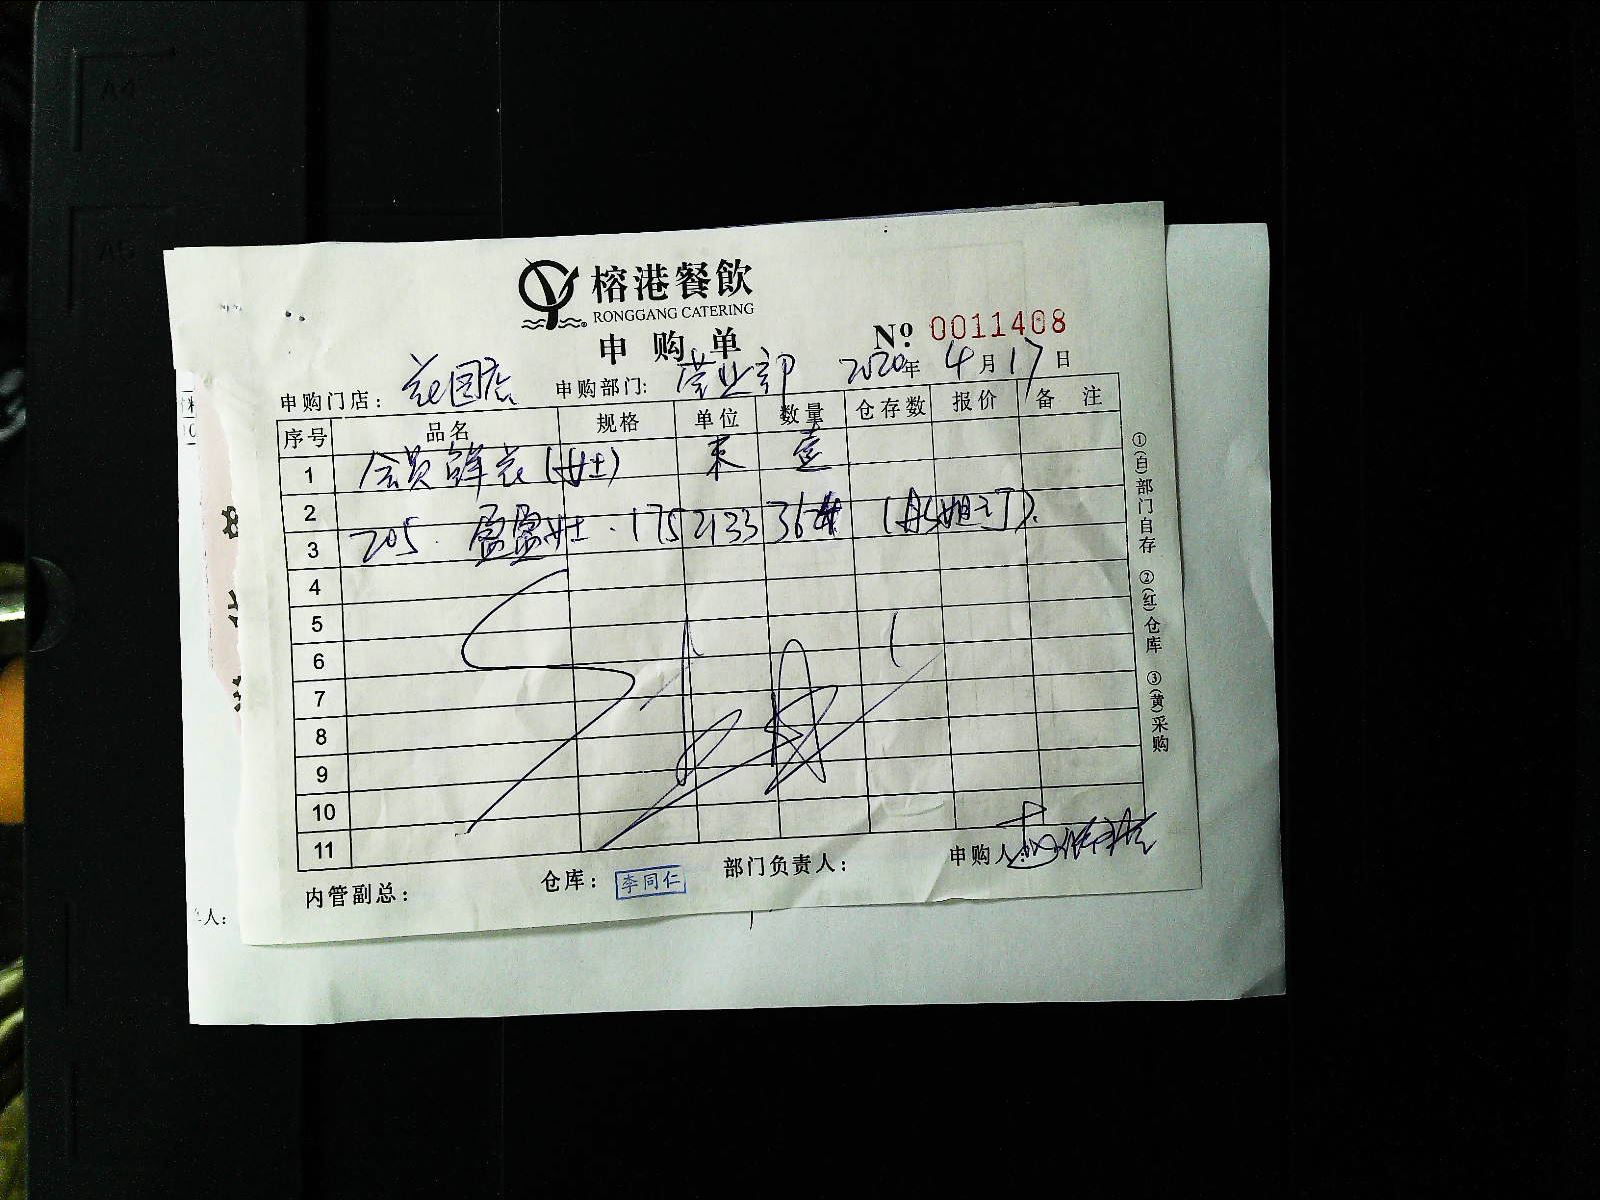 A4
A5
榕港餐飲
RONGGANG CATERING
申购单
№: 0011408
申购门店: 花园店 申购部门: 营业部 2020年 4月17日
序号 品名 规格 单位 数量 仓存数 报价 备注
1 会员鲜花(女士) 束 壹
2
3 205. 盈盈女士·175213336
4
5
6
7
8
9
10
11
内管副总: 仓库: 李同仁 部门负责人: 申购人:
①(白)部门自存 ②(红)仓库 ③(黄)采购
人: